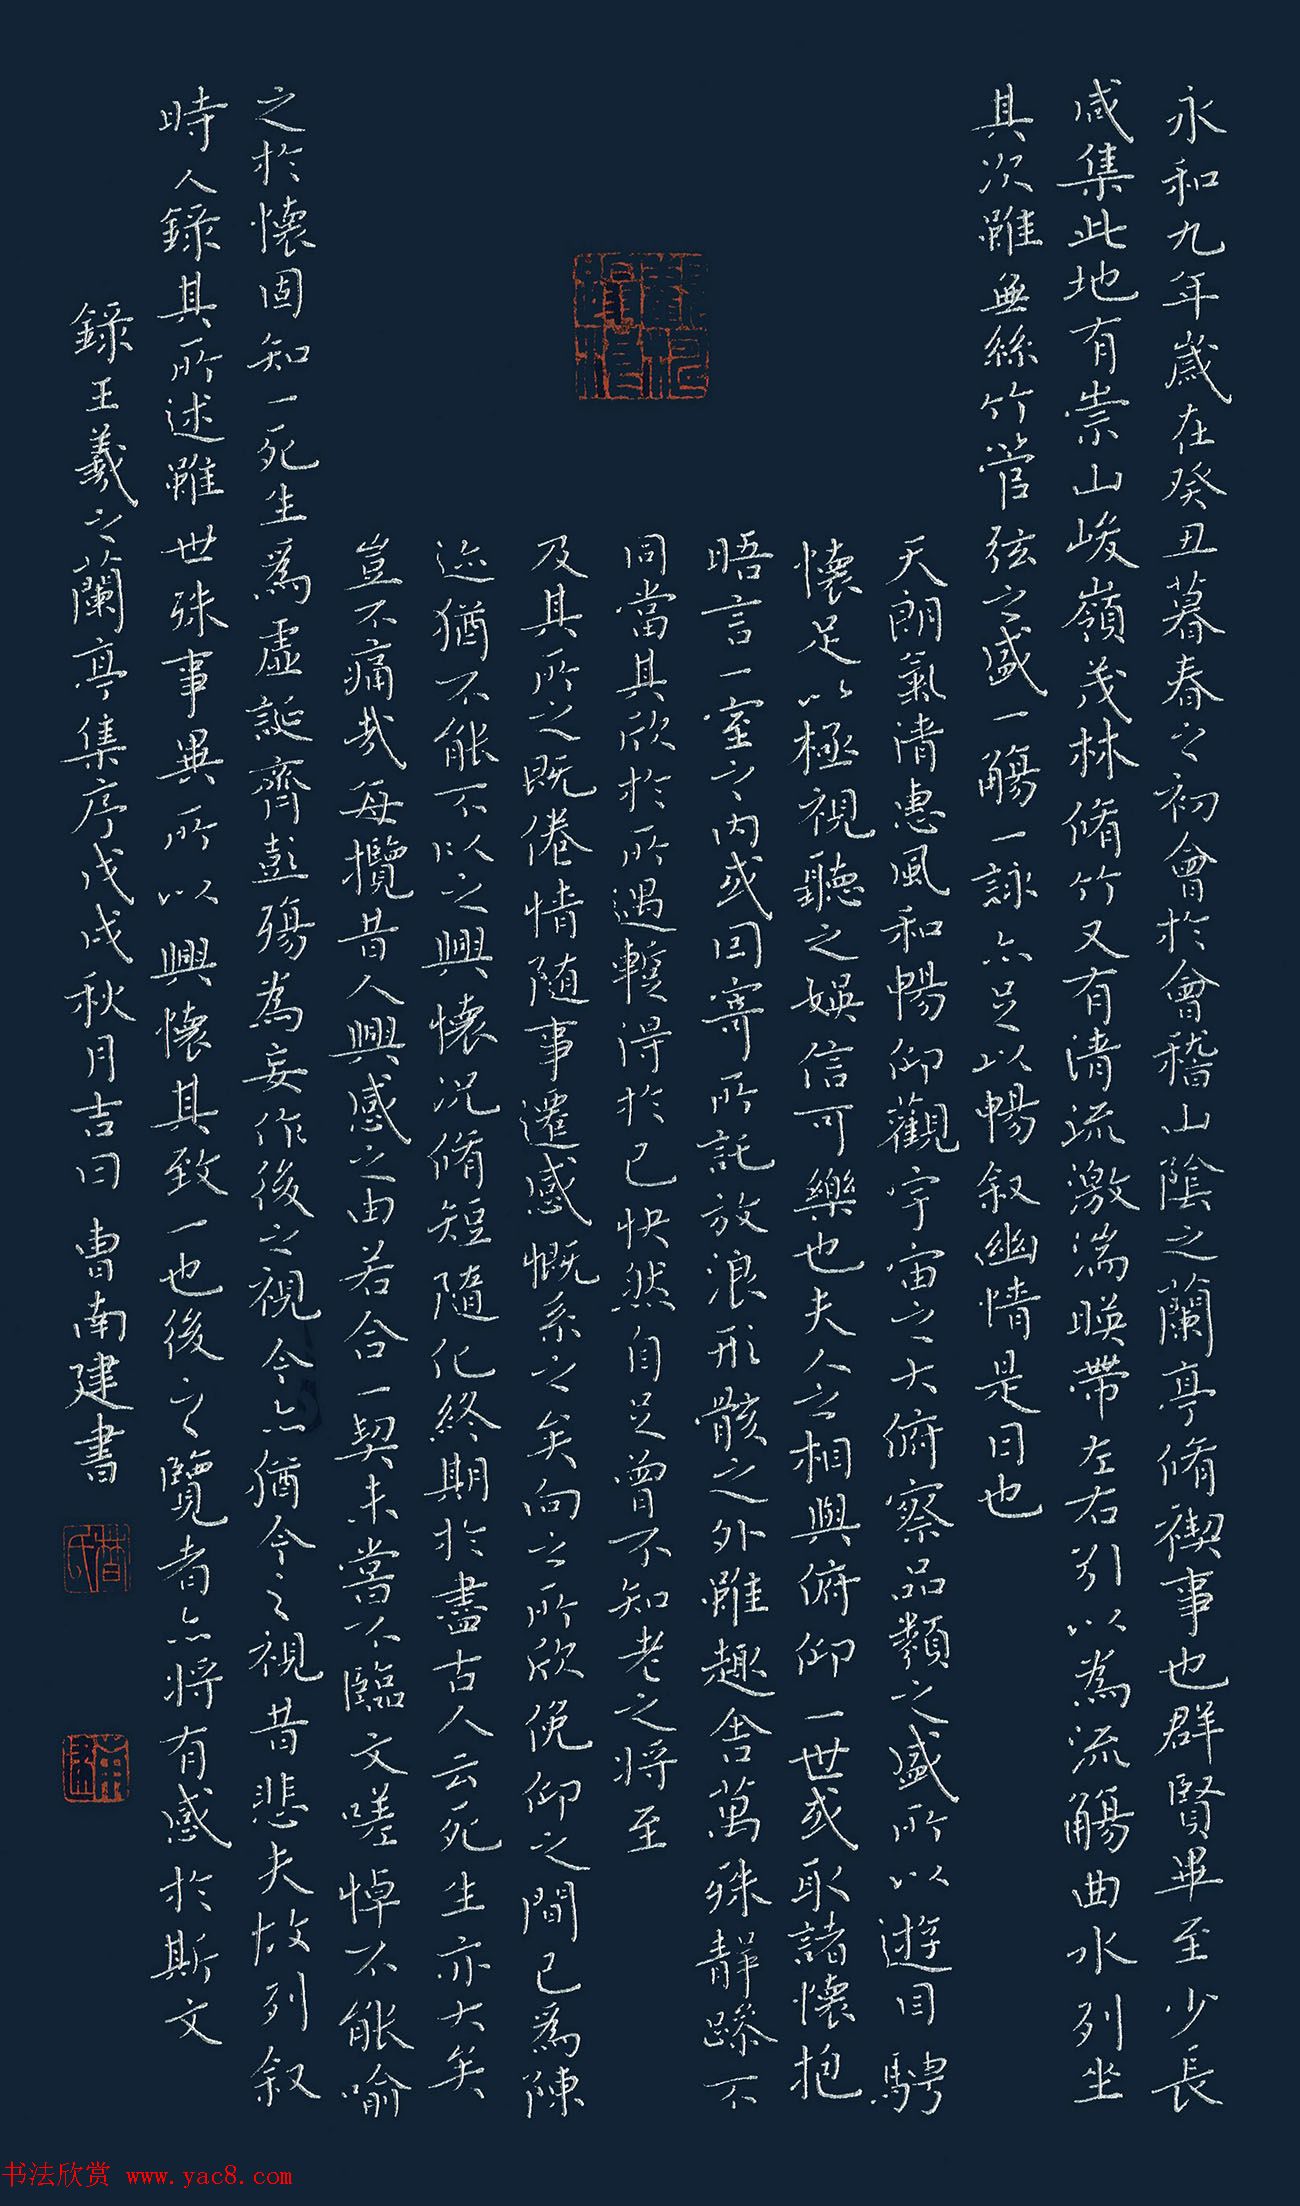 永和九年歲在癸丑暮春之初會於會稽山陰之蘭亭脩禊事也群賢畢至少長
咸集此地有崇山峻嶺茂林脩竹又有清流激湍暎帶左右引以為流觴曲水列坐
其次雖無絲竹管弦之盛一觴一詠亦足以暢叙幽情是日也
天朗氣清惠風和暢仰觀宇宙之大俯察品類之盛所以遊目騁
懷足以極視聽之娛信可樂也夫人之相與俯仰一世或取諸懷抱
晤言一室之內或因寄所託放浪形骸之外雖趣舍萬殊靜躁不
同當其欣於所遇暫得於己快然自足曾不知老之將至
及其所之既倦情隨事遷感慨系之矣向之所欣俛仰之間已為陳
迹猶不能不以之興懷況脩短隨化終期於盡古人云死生亦大矣
豈不痛哉每攬昔人興感之由若合一契未嘗不臨文嗟悼不能喻
之於懷固知一死生為虛誕齊彭殤為妄作後之視今亦猶今之視昔悲夫故列叙
時人錄其所述雖世殊事異所以興懷其致一也後之覽者亦將有感於斯文
錄王羲之蘭亭集序戊戌秋月吉日 曹南建書
曹氏
南建
书法欣赏 www.yac8.com